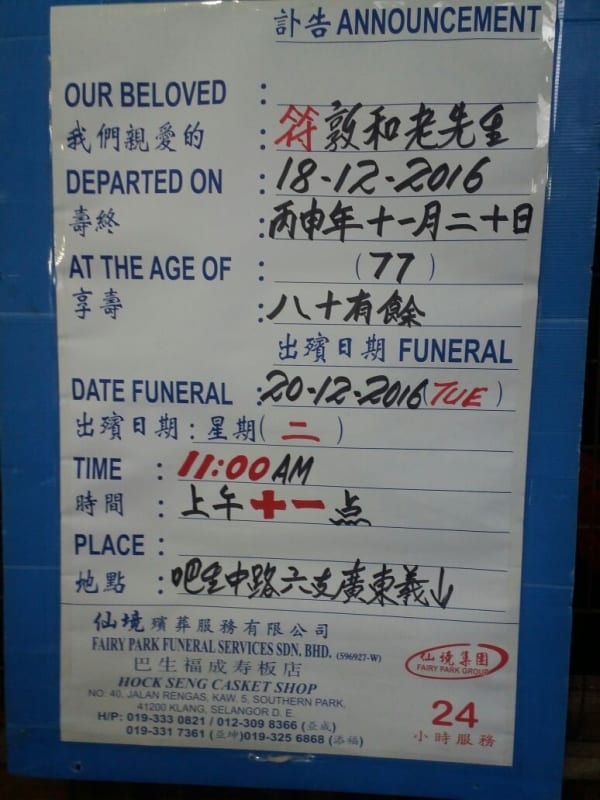 訃告 ANNOUNCEMENT
OUR BELOVED :
我們親愛的 : 符敦和老先生
DEPARTED ON : 18-12-2016
壽終 : 丙申年十一月二十日
AT THE AGE OF : (77)
享壽 : 八十有餘
出殯日期 FUNERAL
DATE FUNERAL : 20-12-2016 (TUE)
出殯日期 : 星期(二)
TIME : 11:00AM
時間 : 上午十一点
PLACE :
地點 : 吧生中路六支廣東義山
仙境殯葬服務有限公司
FAIRY PARK FUNERAL SERVICES SDN. BHD. (596927-W)
巴生福成寿板店
HOCK SENG CASKET SHOP
NO: 40, JALAN RENGAS, KAW. 5, SOUTHERN PARK,
41200 KLANG, SELANGOR D. E.
H/P: 019-333 0821 / 012-309 8366 (亚成)
019-331 7361 (亚坤) 019-325 6868 (添福)
仙境集团
FAIRY PARK GROUP
24
小時服務